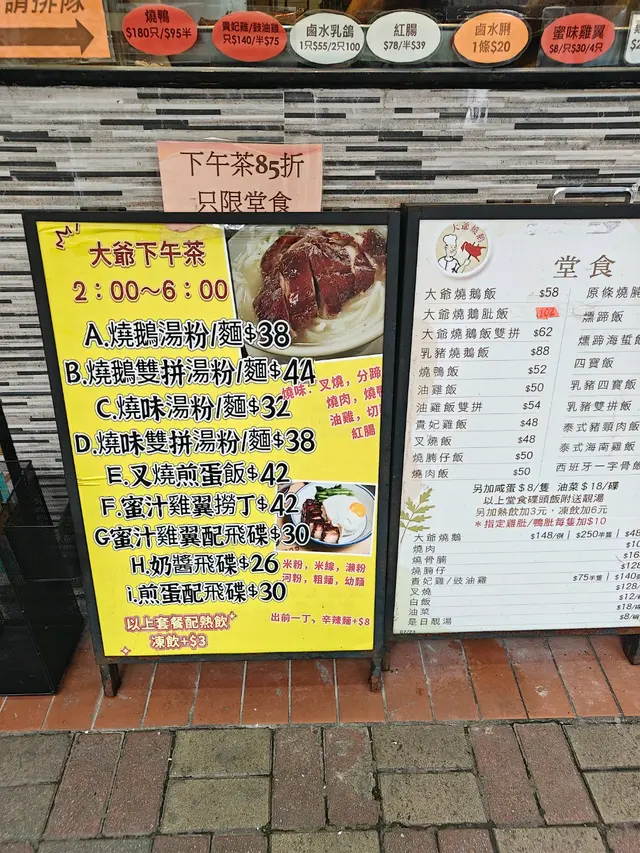 請排隊
燒鴨
$180只/$95半
貴妃雞/豉油雞
只$140/半$75
鹵水乳鴿
1只$55/2只100
紅腸
$78/半$39
鹵水脷
1條$20
蜜味雞翼
$8/只$30/4只
下午茶85折
只限堂食
大爺下午茶
2：00～6：00
A.燒鵝湯粉/麵$38
B.燒鵝雙拼湯粉/麵$44
C.燒味湯粉/麵$32
D.燒味雙拼湯粉/麵$38
E.叉燒煎蛋飯$42
F.蜜汁雞翼撈丁$42
G蜜汁雞翼配飛碟$30
H.奶醬飛碟$26
i.煎蛋配飛碟$30
燒味：叉燒，分蹄
燒肉，燒鴨
油雞，切
紅腸
米粉，米線，瀨粉
河粉，粗麵，幼麵
以上套餐配熱飲
凍飲+$3
出前一丁，辛辣麵+$8
大爺燒鵝
堂食
大爺燒鵝飯 $58
大爺燒鵝肶飯 102
大爺燒鵝飯雙拼 $62
乳豬燒鵝飯 $88
燒鴨飯 $52
油雞飯 $50
油雞飯雙拼 $54
貴妃雞飯 $48
叉燒飯 $48
燒腩仔飯 $50
燒肉飯 $50
原條燒腩
燻蹄飯
燻蹄海蜇飯
四寶飯
乳豬四寶飯
乳豬雙拼飯
泰式豬頸肉飯
泰式海南雞飯
西班牙一字骨飯
另加咸蛋$8/隻 油菜$18/碟
以上堂食碟頭飯附送靚湯
另加熱飲加3元，凍飲加6元
*指定雞肶/鴨肶每隻加$10
大爺燒鵝 $148/例 | $250半隻 | $48
燒肉 $10
燒骨腩 $16
燒腩仔 $128
貴妃雞/豉油雞 $75半隻 | $140
叉燒 $128/
白飯 $12/
油菜 $18/
是日靚湯 $8/